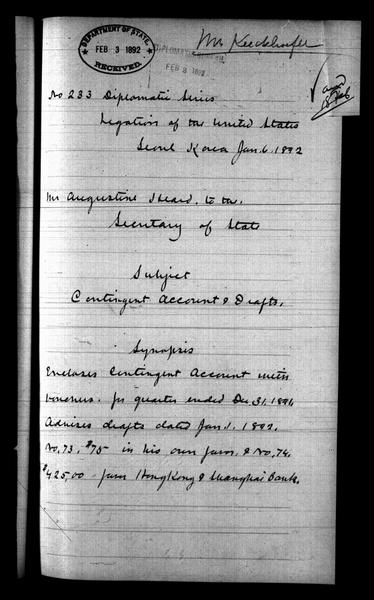 Mr Keckhoefer
DEPARTMENT OF STATE,
FEB 3 1892
RECEIVED.
DIPLOMATIC BUREAU,
FEB 3 1892
No 233 Diplomatic Series
Legation of the United States
Seoul Korea Jan. 6. 1892
Mr Augustine Heard, to the,
Secretary of State
Subject
Contingent Account & Drafts.
Synopsis
Encloses Contingent Account with
vouchers. for quarter ended Dec. 31, 1891,
Advises drafts dated Jan. 1. 1892.
No. 73. $75 in his own favor. & No. 74.
$425.00 favor HongKong & Shanghai Bank.